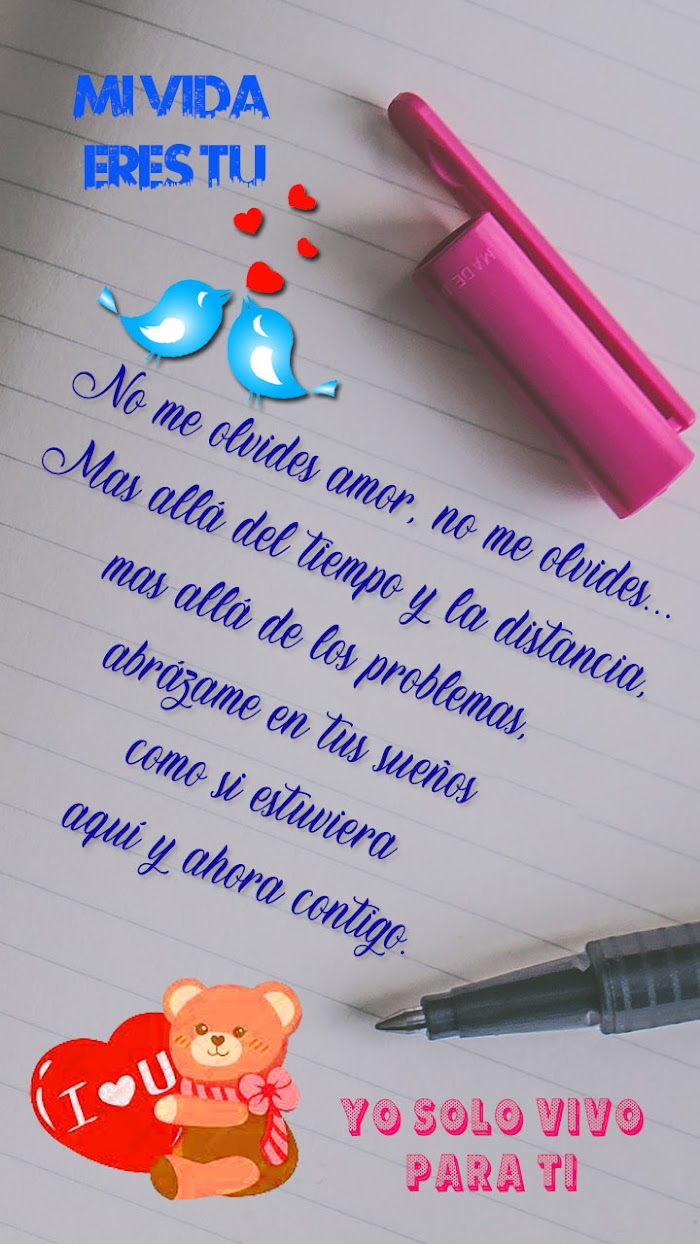 MI VIDA
ERES TU
MADE
No me olvides amor, no me olvides...
Mas allá del tiempo y la distancia,
mas allá de los problemas,
abrázame en tus sueños
como si estuviera
aquí y ahora contigo.
I U
YO SOLO VIVO
PARA TI